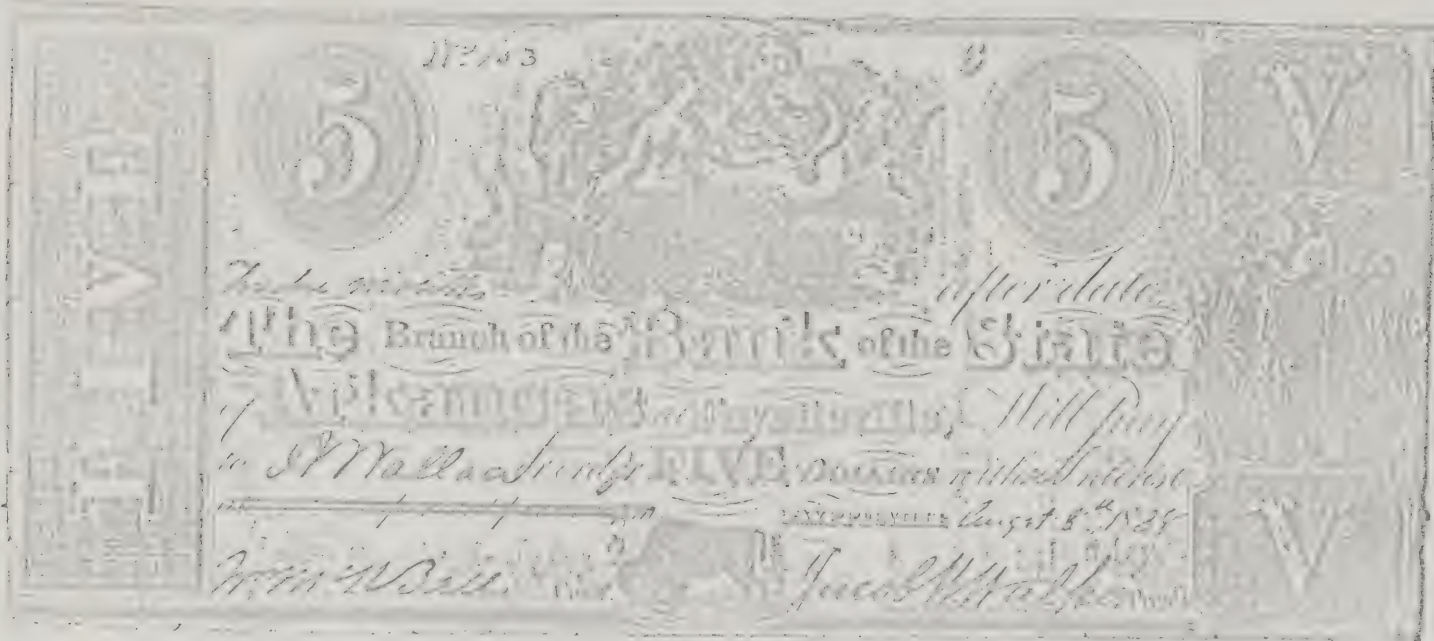 No 103
5 5
FIVE
V
Twelve months after date
The Branch of the Bank of the State
of Arkansas at Fayetteville, Will pay
to Wallace FIVE DOLLARS without interest
FAYETTEVILLE August 8th
Wm McK Ball Cash.r Jacob Pres.t
V